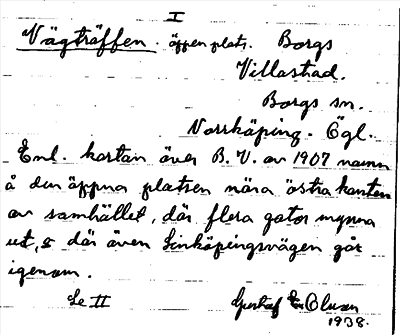 I
Vägträffen. öppen plats. Borgs
Villastad.
Borgs sn.
Norrköping. Ögl.
Enl. kartan över B. V. av 1907 namn
å den öppna platsen nära östra kanten
av samhället, där flera gator mynna
ut, & där även Linköpingsvägen går
igenom.
Se II Gustaf E.
1938.